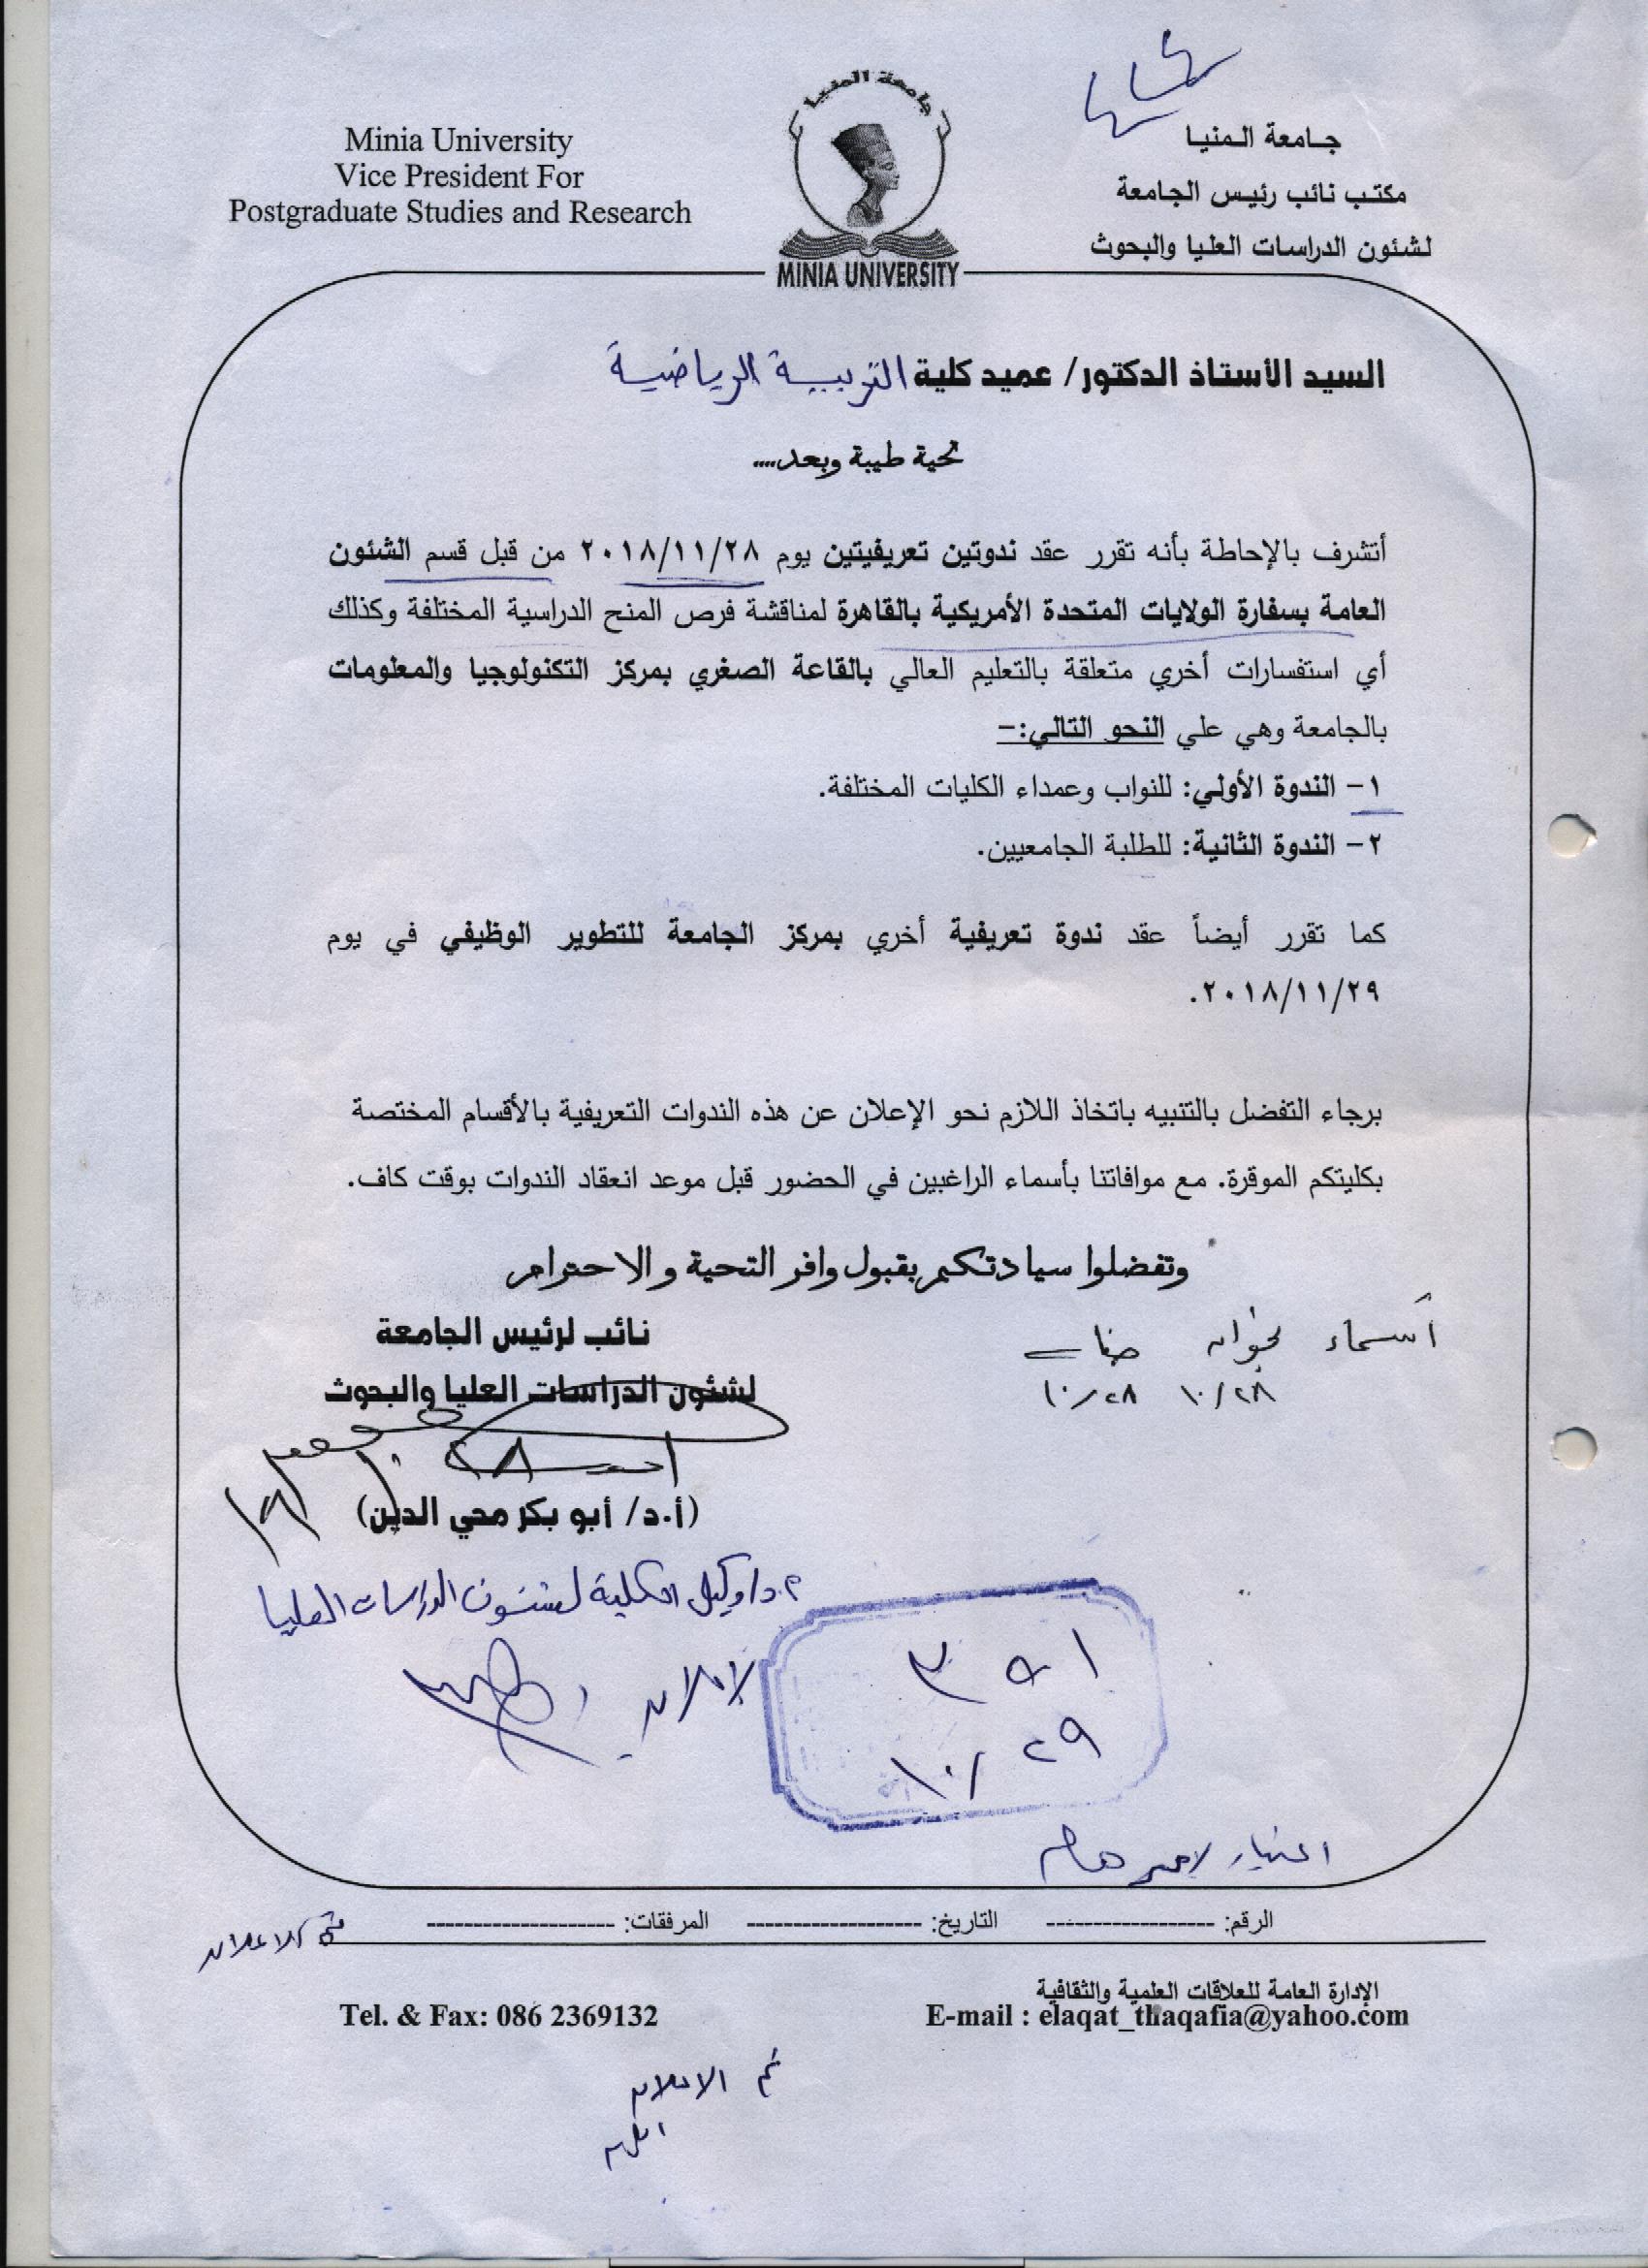 جامعة المنيا
Minia University
Vice President For
Postgraduate Studies and Research
جامعة المنيا
مكتب نائب رئيس الجامعة
لشئون الدراسات العليا والبحوث
MINIA UNIVERSITY
السيد الأستاذ الدكتور/ عميد كلية التربية الرياضية
تحية طيبة وبعد....
أتشرف بالإحاطة بأنه تقرر عقد ندوتين تعريفيتين يوم ٢٠١٨/١١/٢٨ من قبل قسم الشئون
العامة بسفارة الولايات المتحدة الأمريكية بالقاهرة لمناقشة فرص المنح الدراسية المختلفة وكذلك
أي استفسارات أخري متعلقة بالتعليم العالي بالقاعة الصغري بمركز التكنولوجيا والمعلومات
بالجامعة وهي علي النحو التالي:-
١- الندوة الأولي: للنواب وعمداء الكليات المختلفة.
٢- الندوة الثانية: للطلبة الجامعيين.
كما تقرر أيضاً عقد ندوة تعريفية أخري بمركز الجامعة للتطوير الوظيفي في يوم
٢٠١٨/١١/٢٩.
برجاء التفضل بالتنبيه باتخاذ اللازم نحو الإعلان عن هذه الندوات التعريفية بالأقسام المختصة
بكليتكم الموقرة. مع موافاتنا بأسماء الراغبين في الحضور قبل موعد انعقاد الندوات بوقت كاف.
وتفضلوا سيادتكم بقبول وافر التحية والاحترام
نائب لرئيس الجامعة
لشئون الدراسات العليا والبحوث
أسماء
١٠/٢٨ ١٠/٢٨
(أ.د/ أبو بكر محي الدين)
أ.د/ وكيل الكلية لشئون الدراسات العليا
للإعلان
٣٥١
١٠/٢٩
الرقم: ------------------ التاريخ: ------------------- المرفقات: --------------------
تم الاعلان
الإدارة العامة للعلاقات العلمية والثقافية
Tel. & Fax: 086 2369132
E-mail : elaqat_thaqafia@yahoo.com
تم الاعلان